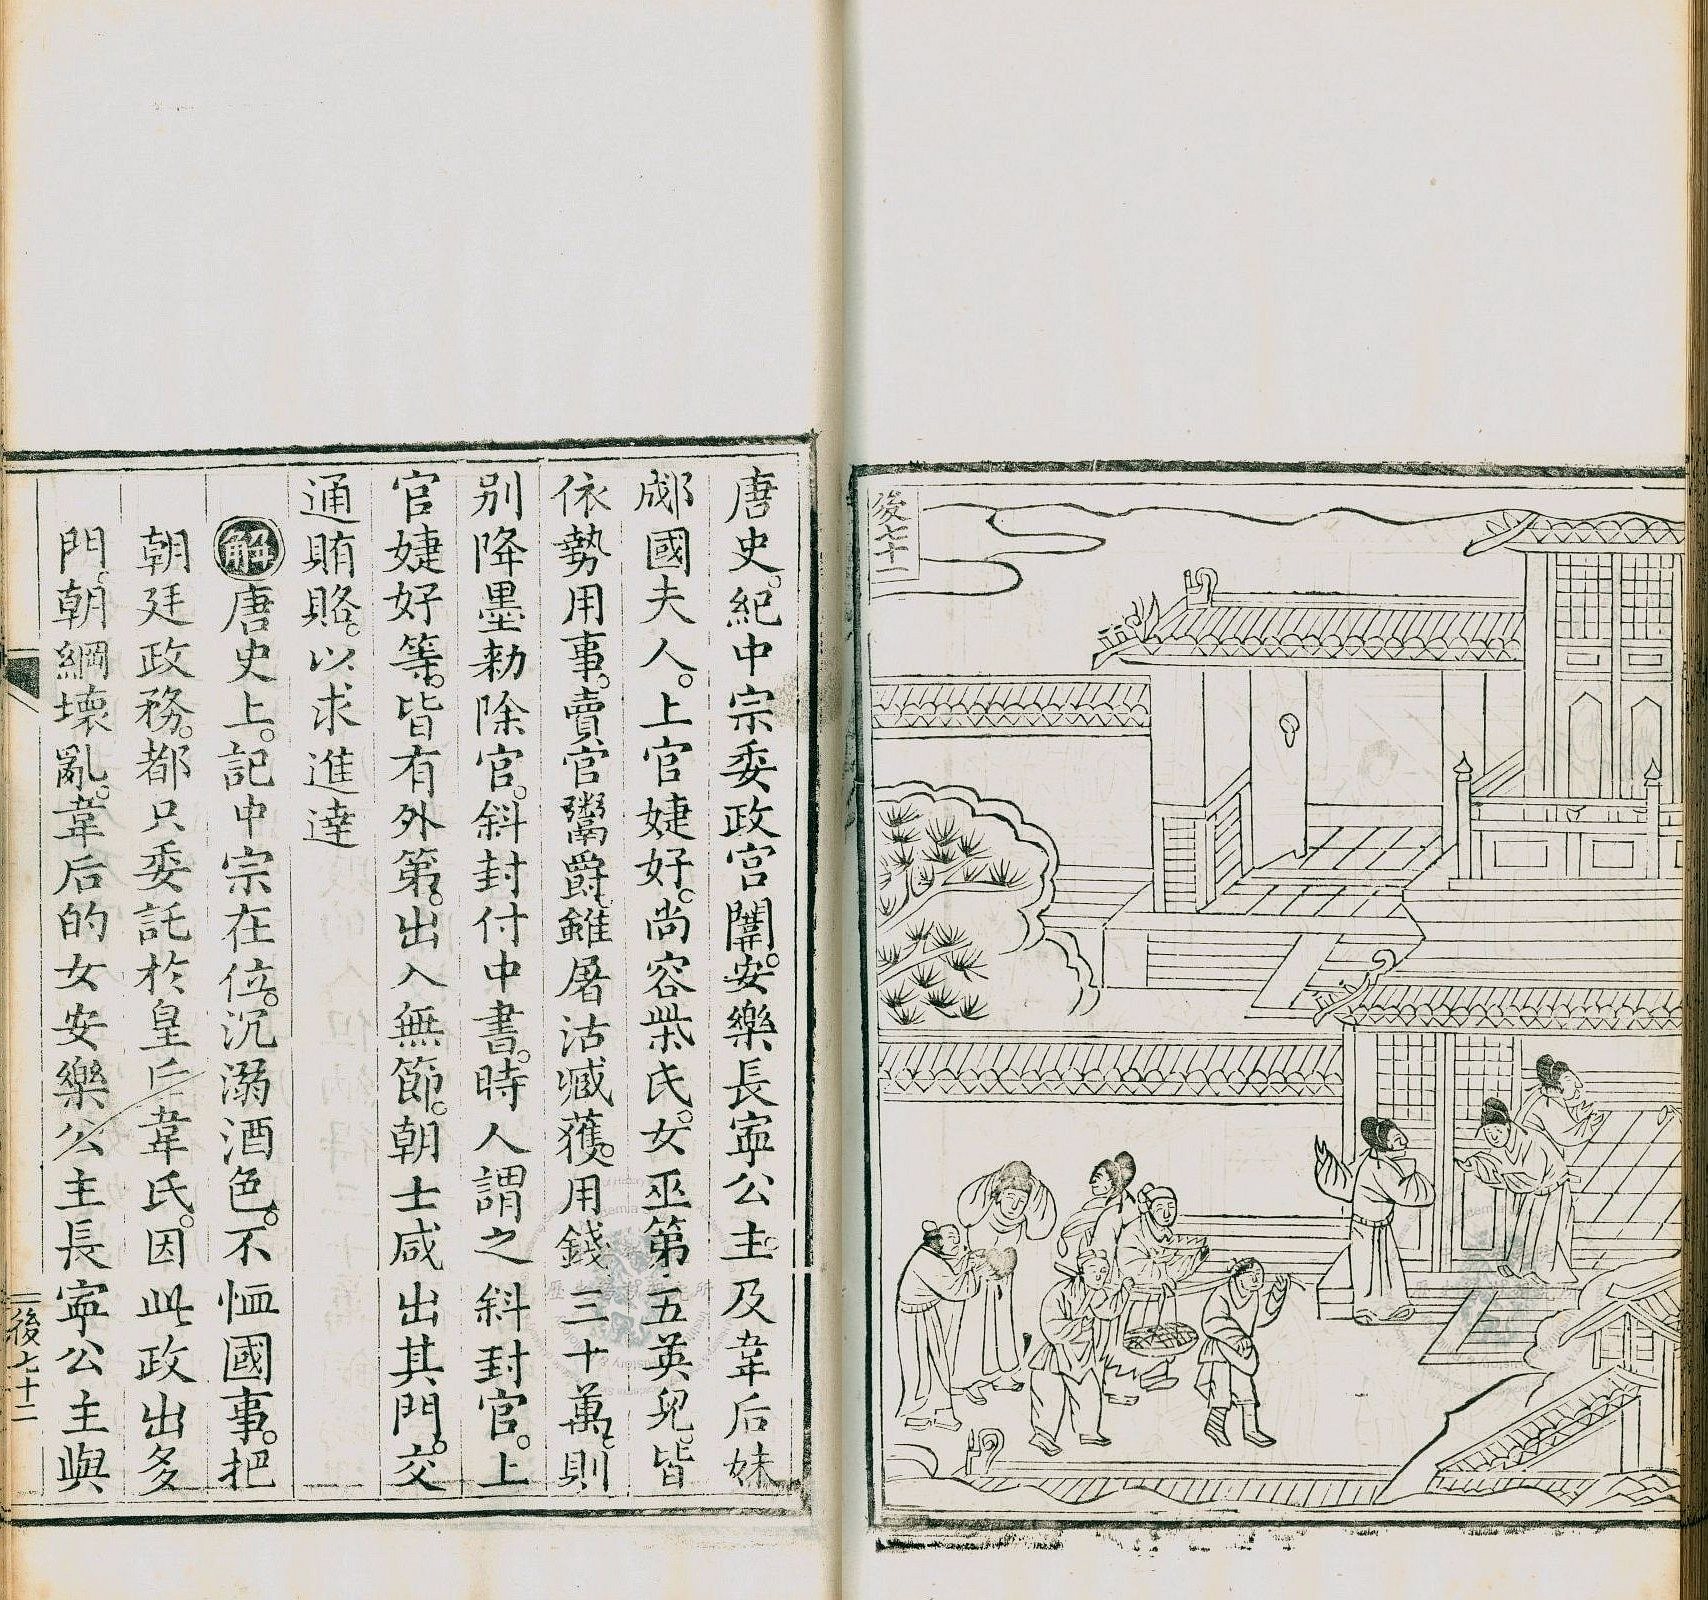 後七十二
唐史。紀中宗委政宮闈。安樂長寧公主。及韋后妹
郕國夫人。上官婕妤。尚容柴氏。女巫第五英兒。皆
依勢用事。賣官鬻爵。雖屠沽臧獲。用錢三十萬。則
別降墨勅除官。斜封付中書。時人謂之斜封官。上
官婕妤等。皆有外第。出入無節。朝士咸出其門。交
通賄賂。以求進達
解唐史上。記中宗在位。沉溺酒色。不恤國事。把
朝廷政務。都只委託於皇后韋氏。因此政出多
門。朝綱壞亂。韋后的女安樂公主長寧公主與
後七十二